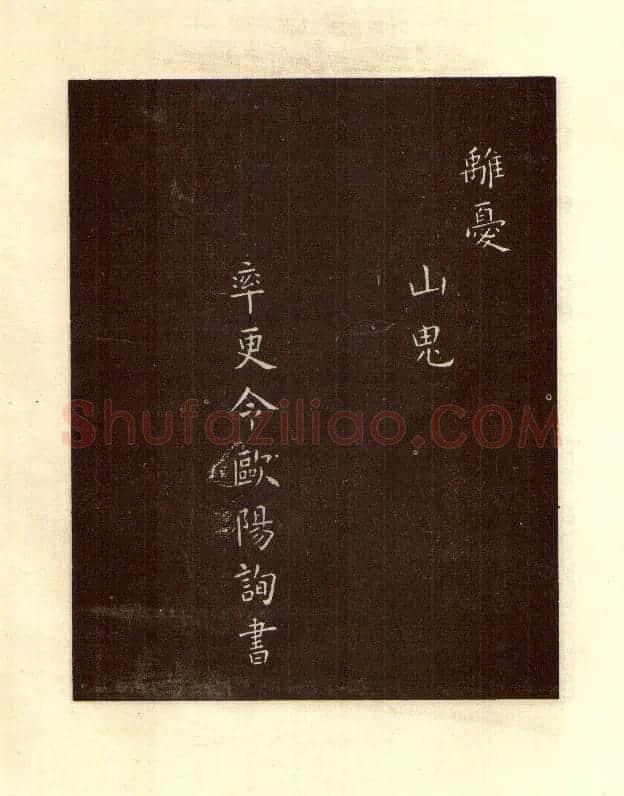 離憂
山鬼
率更令歐陽詢書
Shufaziliao.COM